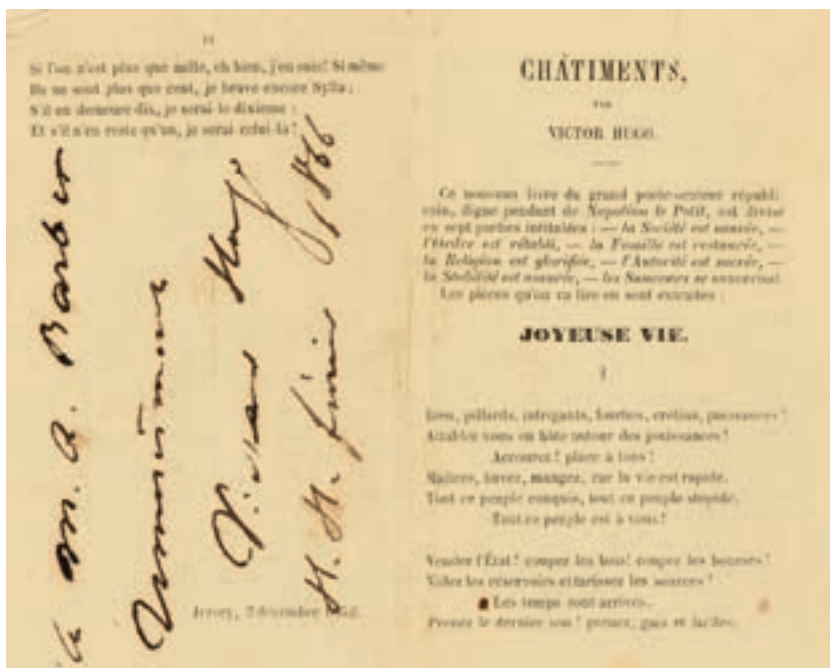 Si l'on n'est plus que mille, eh bien, j'en suis! Si même
Ils ne sont plus que cent, je brave encore Sylla;
S'il en demeure dix, je serai le dixième;
Et s'il n'en reste qu'un, je serai celui-là!
Jersey, 2 décembre 1852.
à M. A. Barbier
Victor Hugo
H. H. 1866
CHÂTIMENTS,
PAR
VICTOR HUGO.
Ce nouveau livre du grand porte-
cain, digne pendant de Napoléon le Petit, est divisé
en sept parties intitulées : — la Société est sauvée, —
l'Ordre est rétabli, — la Famille est restaurée, —
la Religion est glorifiée, — l'Autorité est sacrée, —
la Stabilité est assurée, — les Sauveurs se sauveront.
Les pièces qu'on va lire en sont extraites :
JOYEUSE VIE.
I
Bien, pillards, intrigants, fourbes, crétins, puissances!
Attablez-vous en hâte autour des jouissances!
Accourez! place à tous!
Maîtres, buvez, mangez, car la vie est rapide.
Tout ce peuple conquis, tout ce peuple stupide,
Tout ce peuple est à vous!
Vendez l'État! coupez les bois! coupez les bourses!
Videz les réservoirs et tarissez les sources!
Les temps sont arrivés.
Prenez le dernier sou! prenez, gais et faciles,